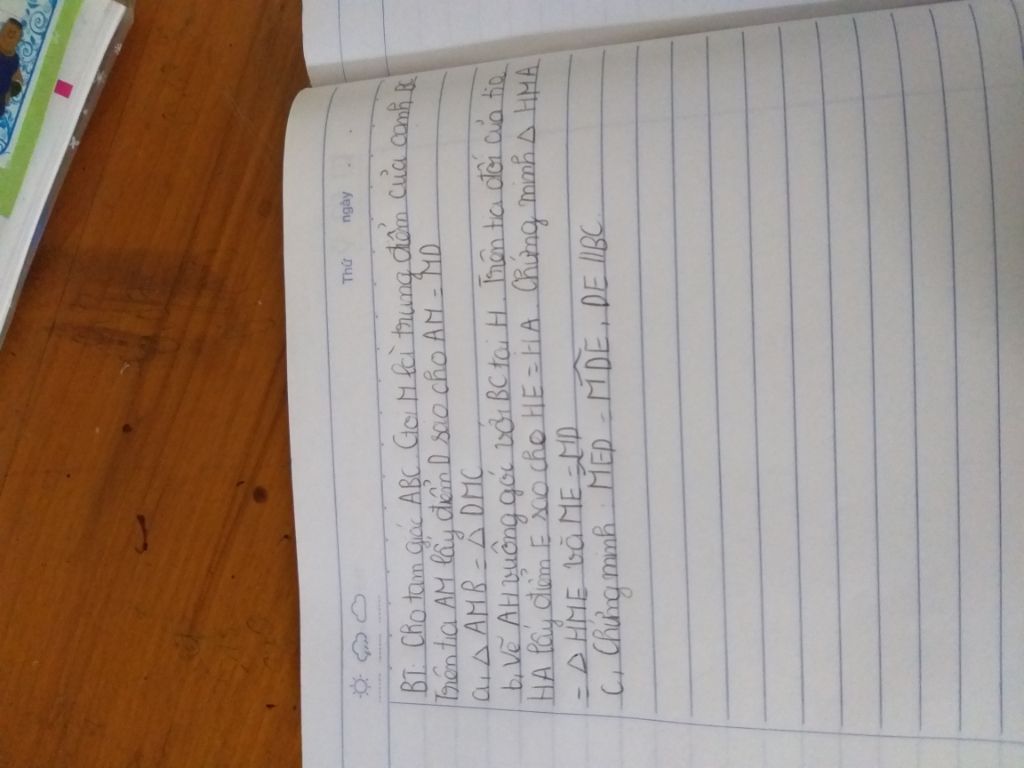 Thứ ngày
BT: Cho tam giác ABC Gọi M là trung điểm của cạnh BC
Trên tia AM lấy điểm D sao cho AM = MD
a, △ AMB = △ DMC
b, Vẽ AH vuông góc với BC tại H. Trên tia đối của tia
HA lấy điểm E sao cho HE = HA Chứng minh △ HMA
= △ HME và ME = MD
C, Chứng minh : MED = MDE, DE // BC